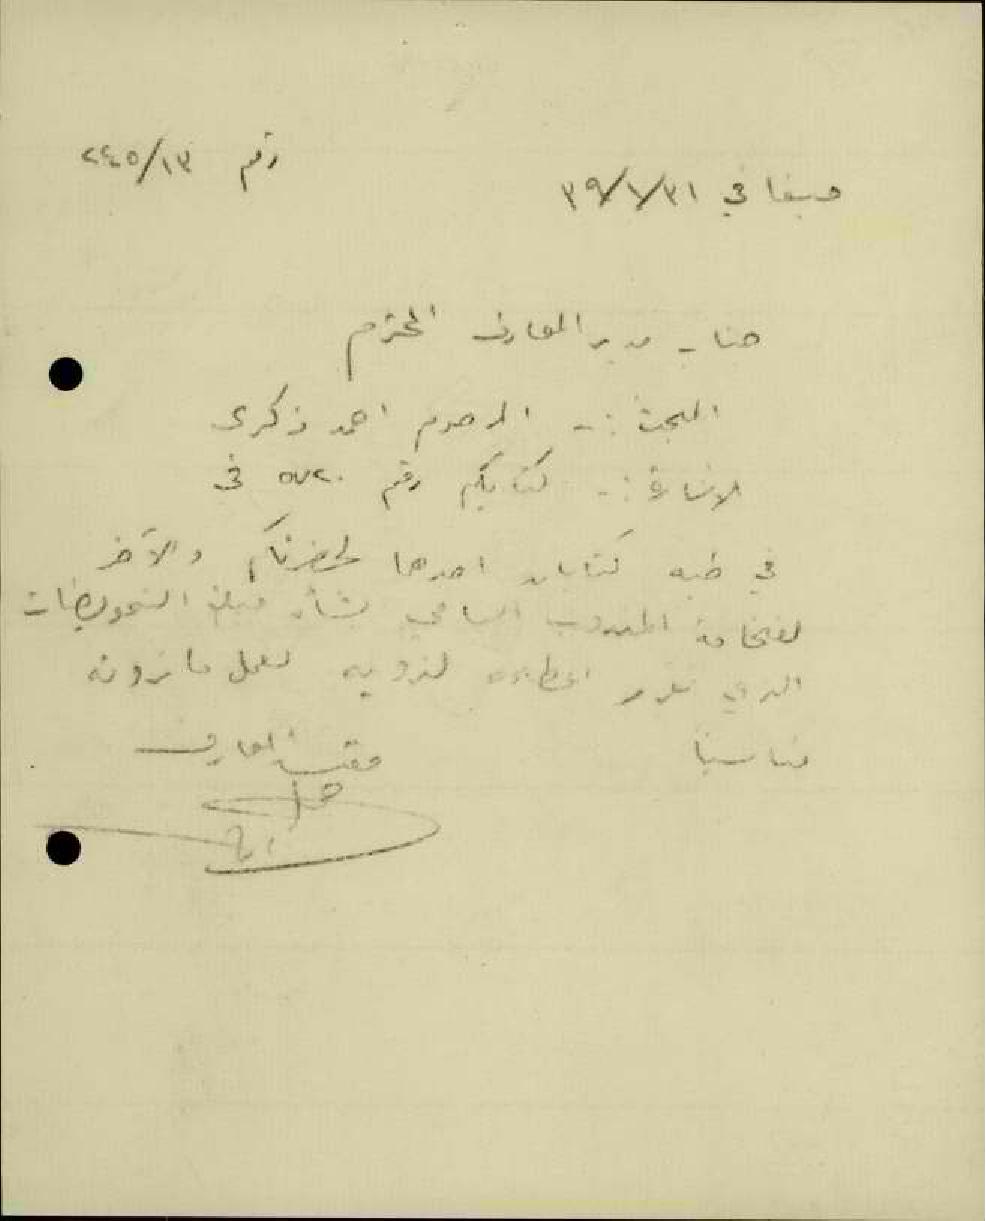 رقم ٢٤٥/١٣
حيفا في ٣٩/١/٣١
جناب مدير المعارف المحترم
البحث :- المرحوم احمد زكري
الاشارة :- كتابكم رقم في
في طيه كتابان احدهما لحضرتكم والآخر
لفخامة المندوب السامي بشأن مبلغ التعويضات
الذي تقرر اعطاؤه لذويه لعمل ما ترونه
مناسبا
مفتش المعارف